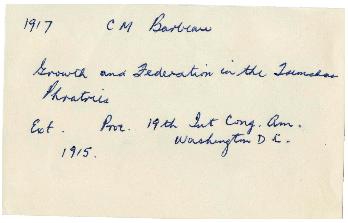 1917 C M Barbeau
Growth and Federation in the Tsimshian
Phratries
Ext. Proc. 19th Int Cong. Am.
Washington D C.
1915.